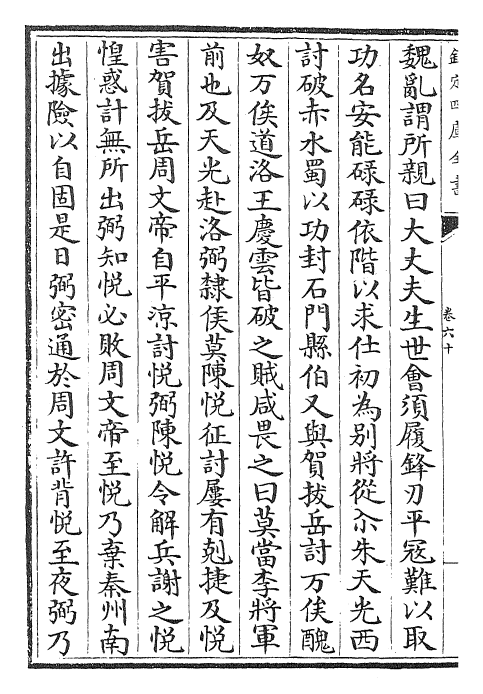 欽定四庫全書
卷六十
魏亂謂所親曰大丈夫生世會須履鋒刃平寇難以取
功名安能碌碌依階以求仕初為别將從尒朱天光西
討破赤水蜀以功封石門縣伯又與賀拔岳討万俟醜
奴万俟道洛王慶雲皆破之賊咸畏之曰莫當李將軍
前也及天光赴洛弼隸侯莫陳悦征討屢有剋捷及悦
害賀拔岳周文帝自平涼討悦弼陳悦令解兵謝之悦
惶惑計無所出弼知悦必敗周文帝至悦乃棄秦州南
出據險以自固是日弼密通於周文許背悦至夜弼乃